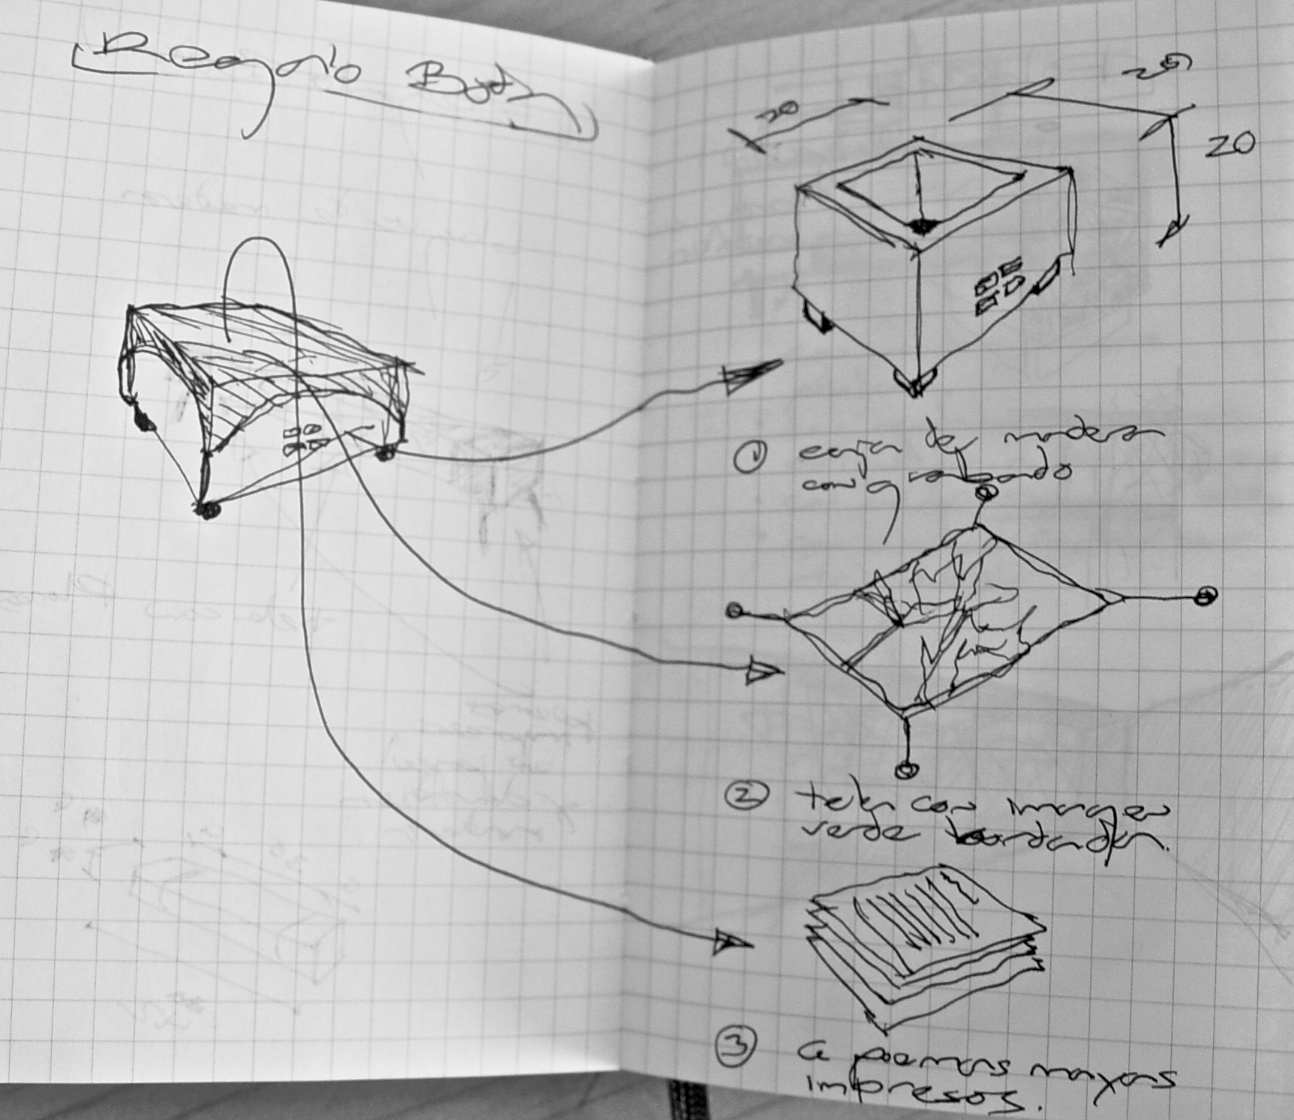 Regalo Boda
30
20
① caja de madera
con grabado
② tela con imagen
verde bordada.
③ 6 poemas mayas
impresos.